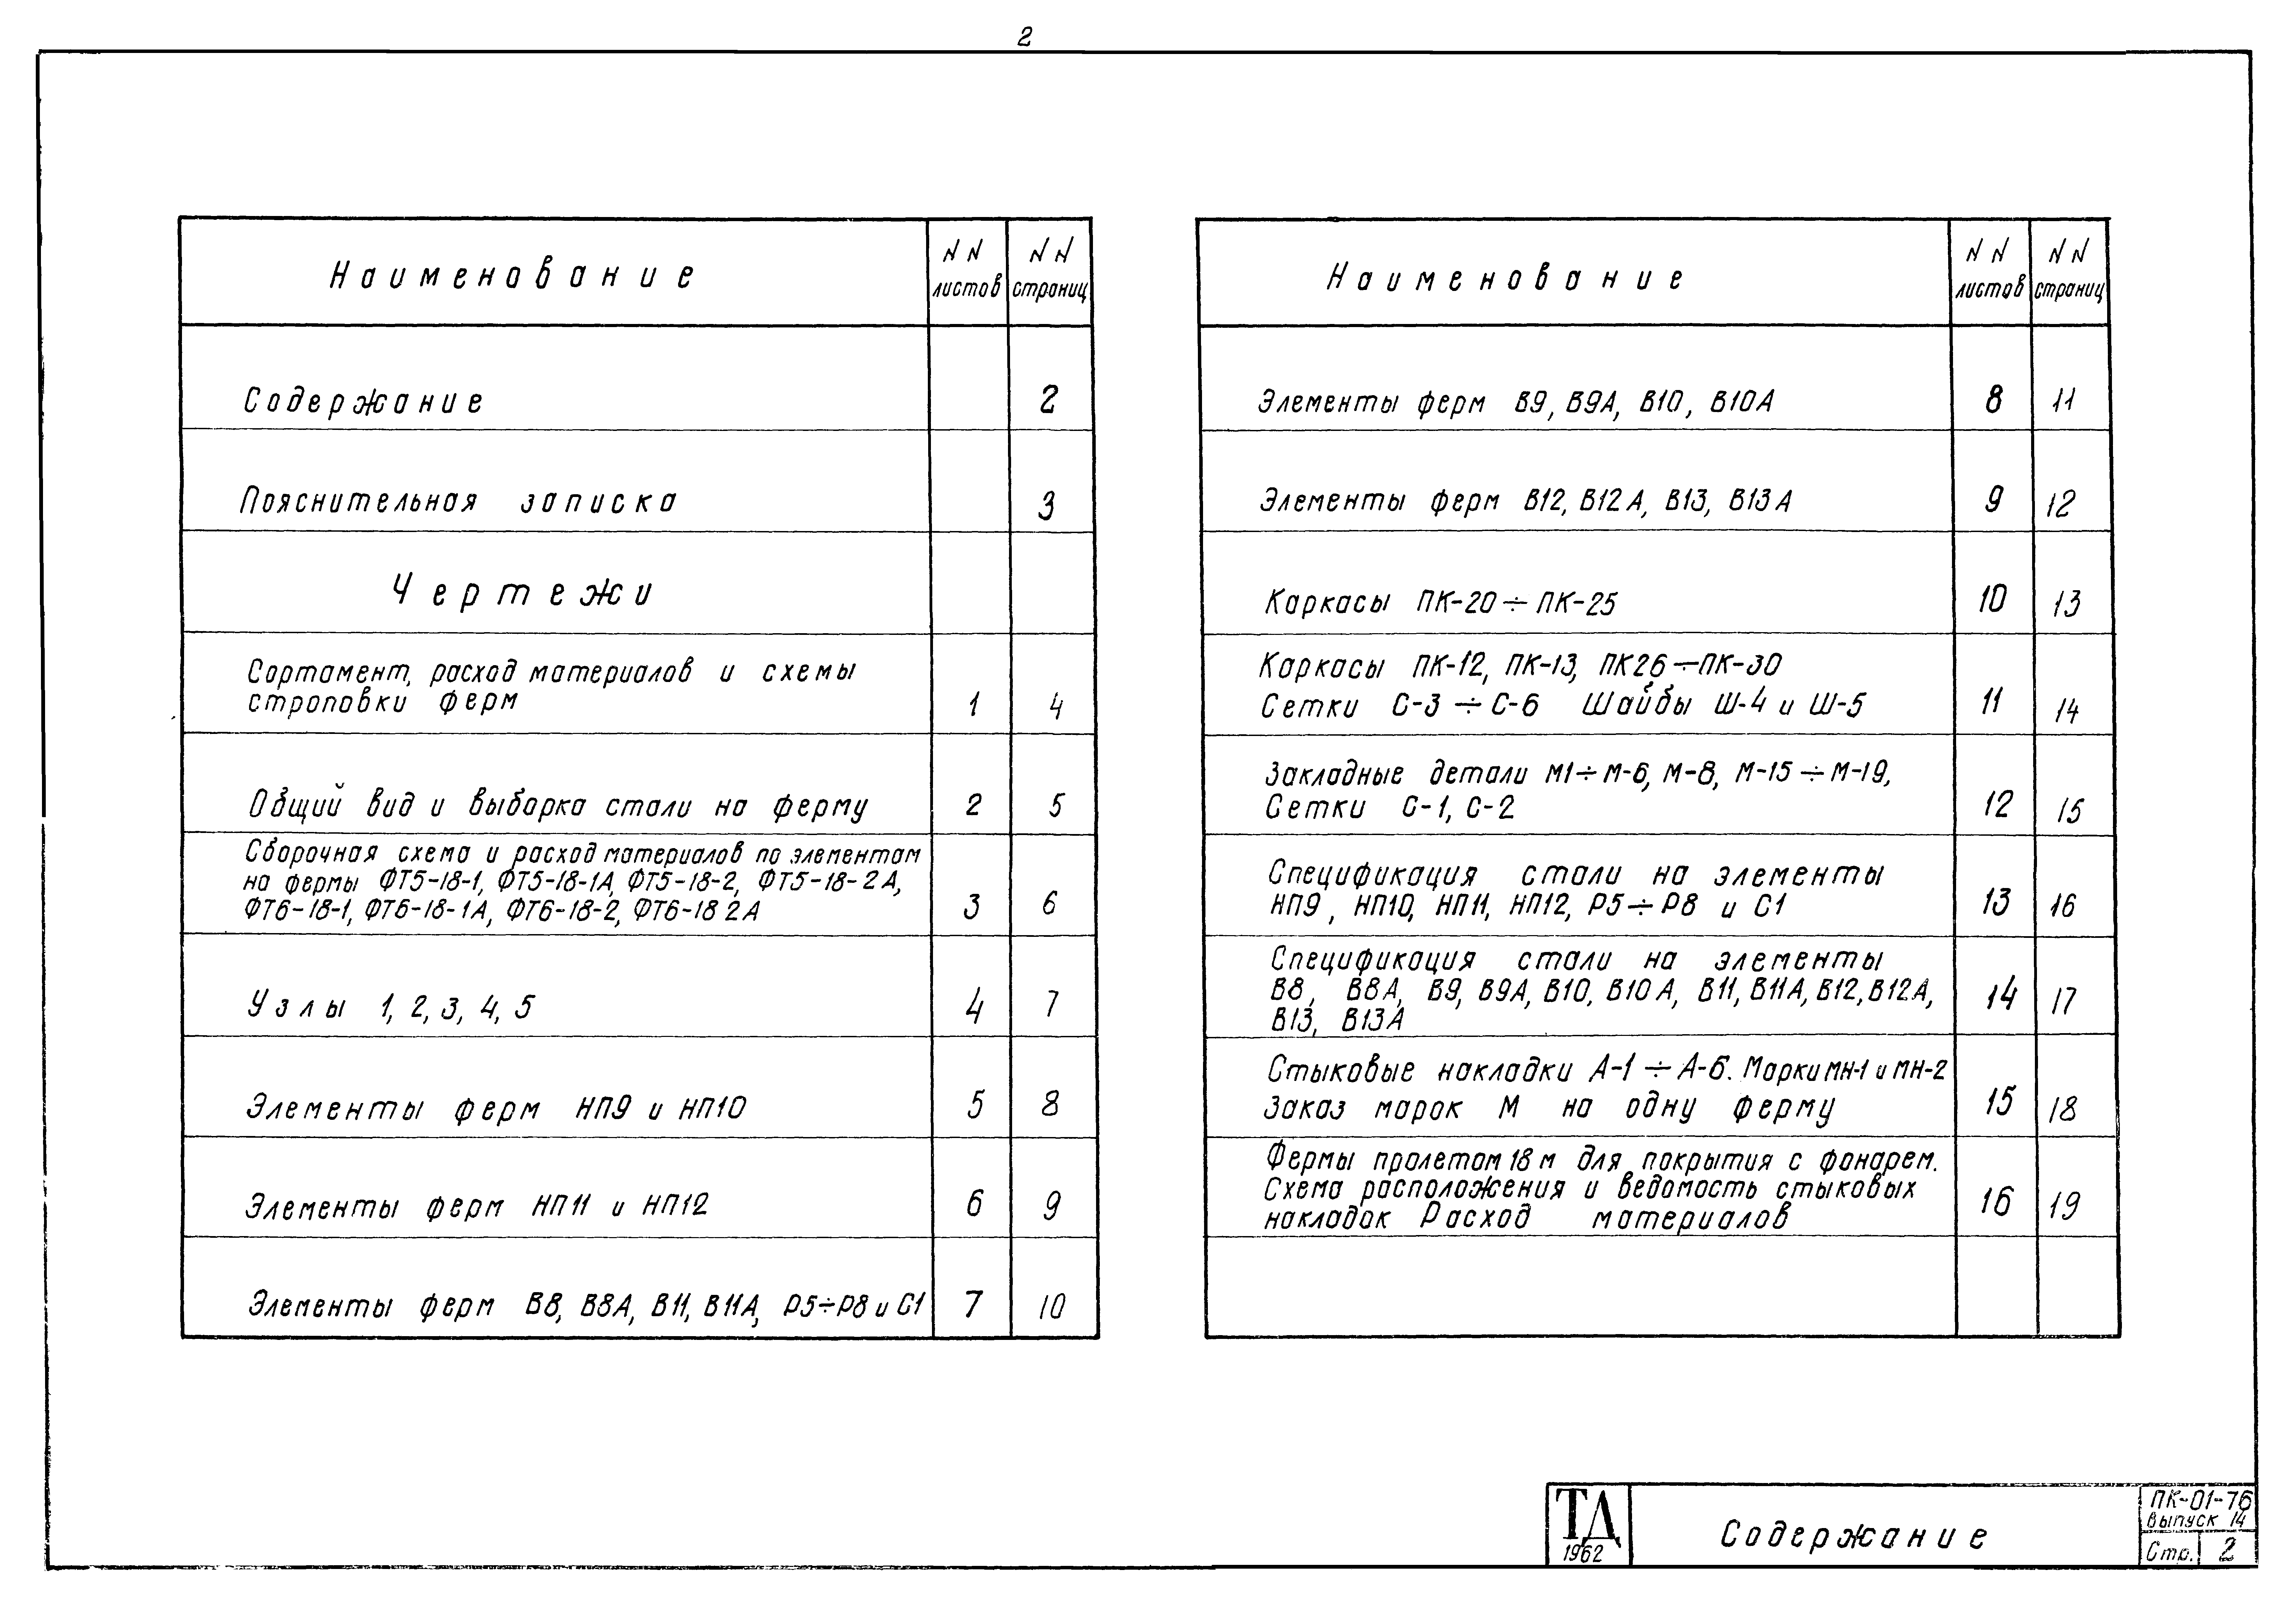 2
Наименование
NN листов
NN страниц
Содержание 2
Пояснительная записка 3
Чертежи
Сортамент, расход материалов и схемы
строповки ферм 1 4
Общий вид и выборка стали на ферму 2 5
Сборочная схема и расход материалов по элементам
на фермы ФТ5-18-1, ФТ5-18-1А, ФТ5-18-2, ФТ5-18-2А,
ФТ6-18-1, ФТ6-18-1А, ФТ6-18-2, ФТ6-18 2А 3 6
Узлы 1, 2, 3, 4, 5 4 7
Элементы ферм НП9 и НП10 5 8
Элементы ферм НП11 и НП12 6 9
Элементы ферм В8, В8А, В11, В11А, Р5÷Р8 и С1 7 10
Наименование
NN листов
NN страниц
Элементы ферм В9, В9А, В10, В10А 8 11
Элементы ферм В12, В12А, В13, В13А 9 12
Каркасы ПК-20÷ПК-25 10 13
Каркасы ПК-12, ПК-13, ПК26÷ПК-30
Сетки С-3÷С-6 Шайбы Ш-4 и Ш-5 11 14
Закладные детали М1÷М-6, М-8, М-15÷М-19,
Сетки С-1, С-2 12 15
Спецификация стали на элементы
НП9, НП10, НП11, НП12, Р5÷Р8 и С1 13 16
Спецификация стали на элементы
В8, В8А, В9, В9А, В10, В10А, В11, В11А, В12, В12А,
В13, В13А 14 17
Стыковые накладки А-1÷А-6. Марки МН-1 и МН-2
Заказ марок М на одну ферму 15 18
Фермы пролетом 18 м для покрытия с фонарем.
Схема расположения и ведомость стыковых
накладок Расход материалов 16 19
ТД
1962
Содержание
ПК-01-76
выпуск 14
Стр. 2